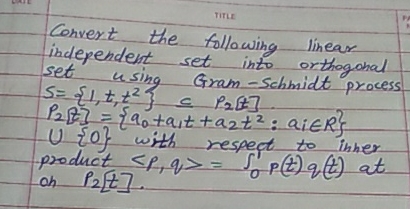 DATE
TITLE
Convert the following linear
independent set into orthogonal
set using Gram-Schmidt process
S = {1, t, t²} ⊆ P₂[t].
P₂[t] = {a₀+a₁t+a₂t² : aᵢ∈R}
U {0} with respect to inner
product <p, q> = ∫₀ p(t) q(t) dt
on P₂[t].